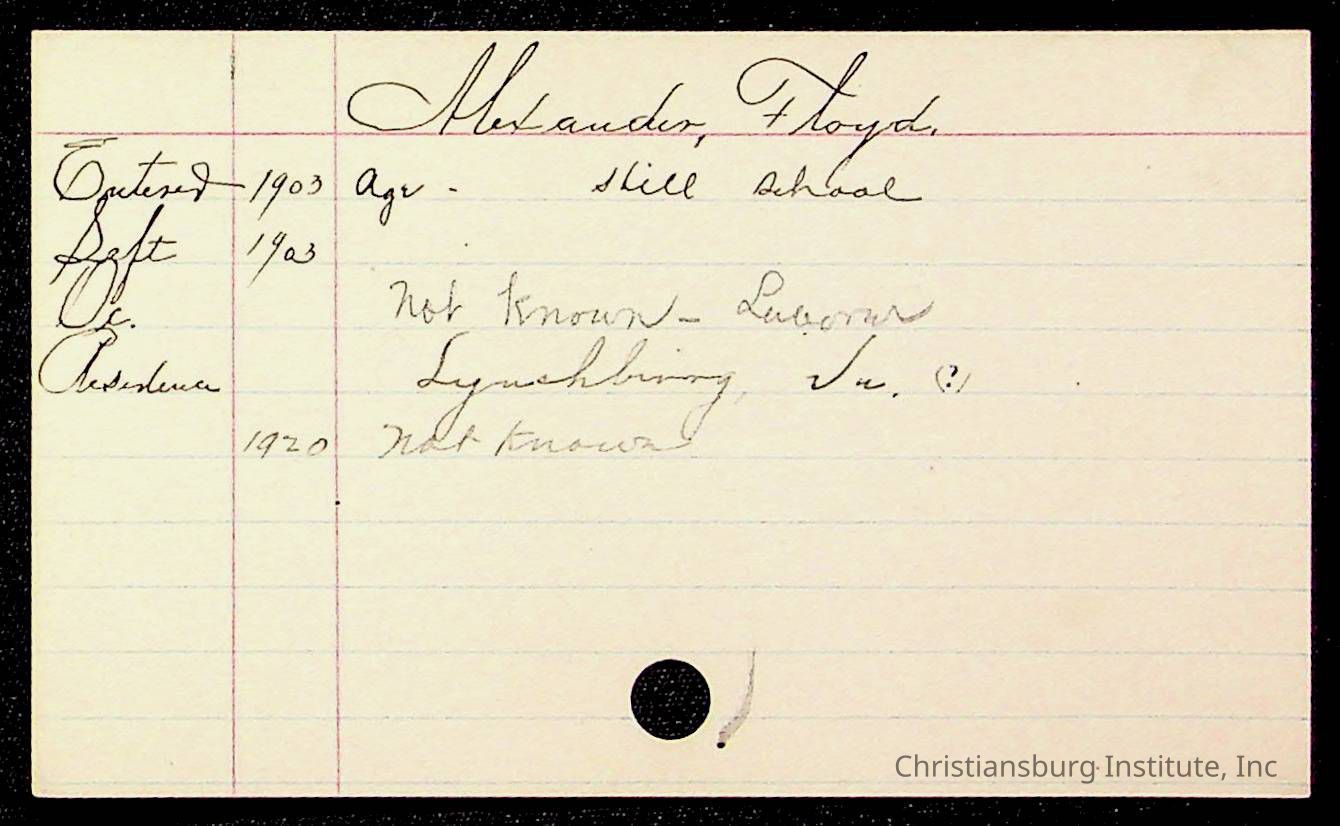 Alexander, Floyd.
Entered 1903 Age - Hill School
Left 1903
Oc. Not Known - Laborer
Residence Lynchburg, Va. (?)
1920 Not Known
Christiansburg Institute, Inc